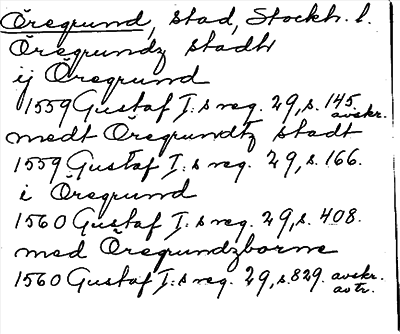 Öregrund, stad, Stockh. l.
Öregrundz stadh
ij Öregrund
1559 Gustaf I:s reg. 29, s. 145 avskr.
medt Öregrundtz stadt
1559 Gustaf I:s reg. 29, s. 166.
i Öregrund
1560 Gustaf I:s reg. 29, s. 408.
med Öregrundzborne
1560 Gustaf I:s reg. 29, s. 829. avskr. avtr.